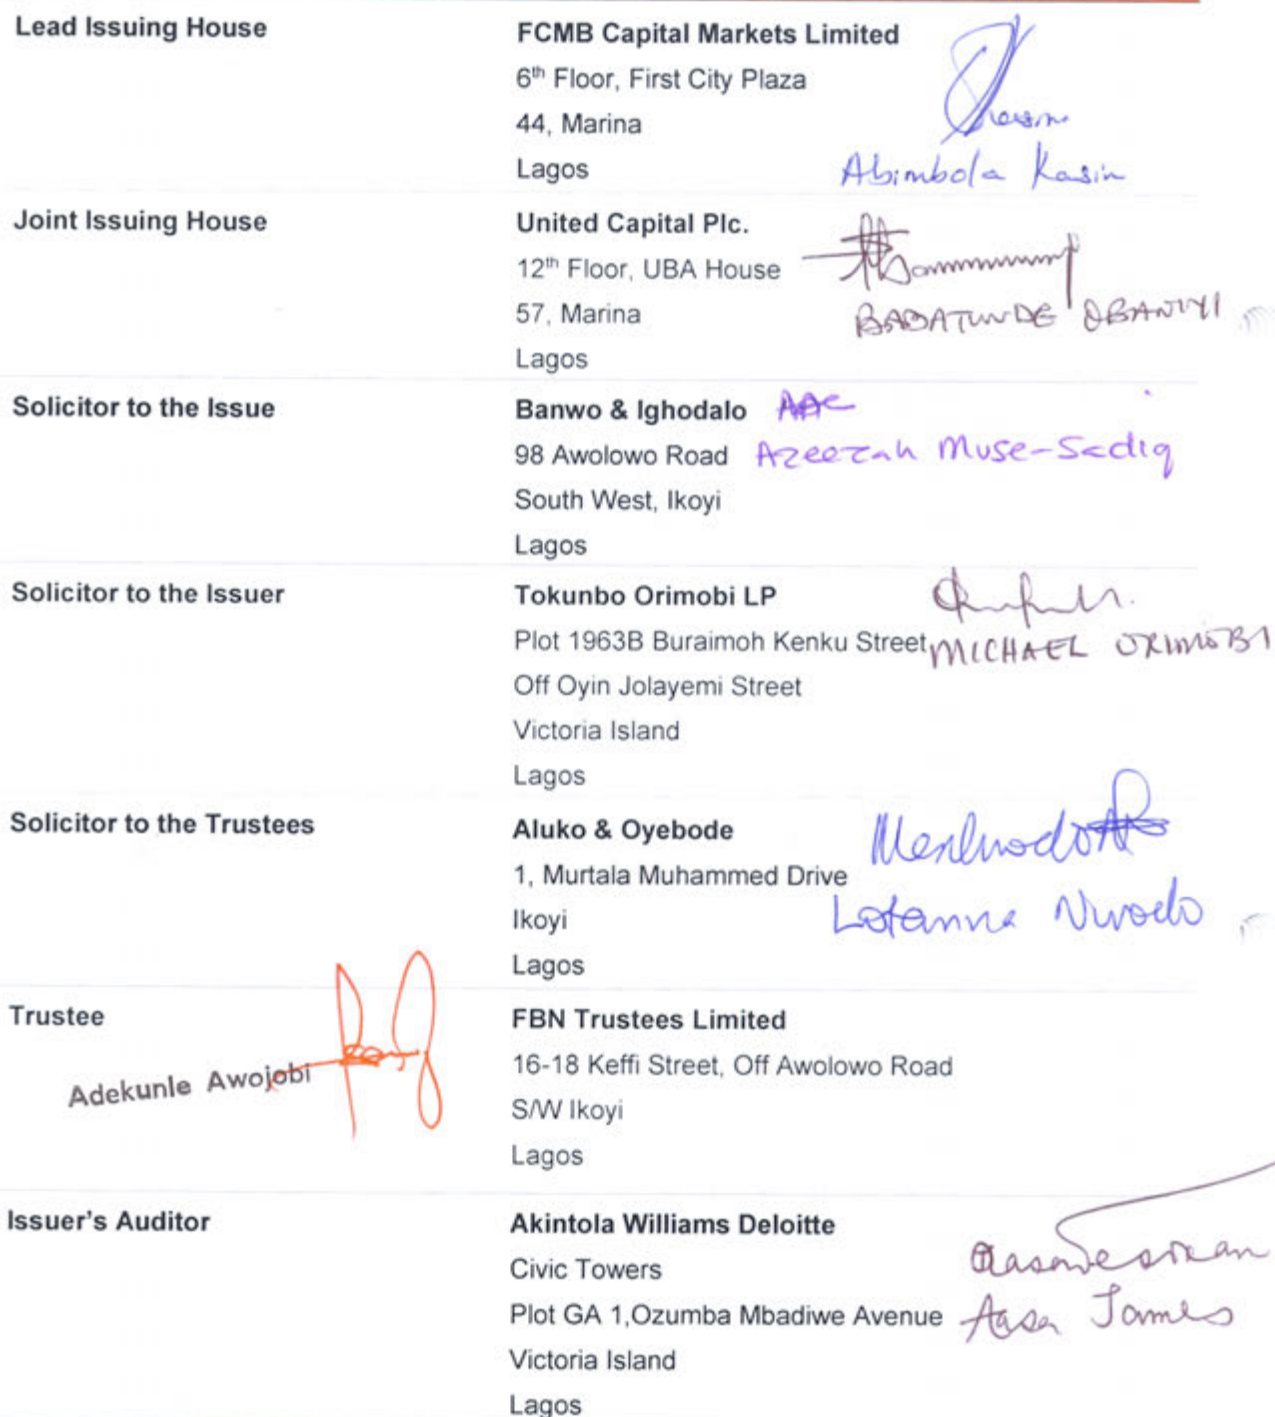 Lead Issuing House
FCMB Capital Markets Limited
6th Floor, First City Plaza
44, Marina
Lagos
Abimbola Kasim
Joint Issuing House
United Capital Plc.
12th Floor, UBA House
57, Marina
BABATUNDE OBANIYI
Lagos
Solicitor to the Issue
Banwo & Ighodalo
98 Awolowo Road
Azeezah Muse-Sadiq
South West, Ikoyi
Lagos
Solicitor to the Issuer
Tokunbo Orimobi LP
Plot 1963B Buraimoh Kenku Street
MICHAEL ORIMOBI
Off Oyin Jolayemi Street
Victoria Island
Lagos
Solicitor to the Trustees
Aluko & Oyebode
1, Murtala Muhammed Drive
Ikoyi
Lotanna Nwodo
Lagos
Trustee
Adekunle Awojobi
FBN Trustees Limited
16-18 Keffi Street, Off Awolowo Road
S/W Ikoyi
Lagos
Issuer's Auditor
Akintola Williams Deloitte
Civic Towers
Plot GA 1,Ozumba Mbadiwe Avenue
James
Victoria Island
Lagos